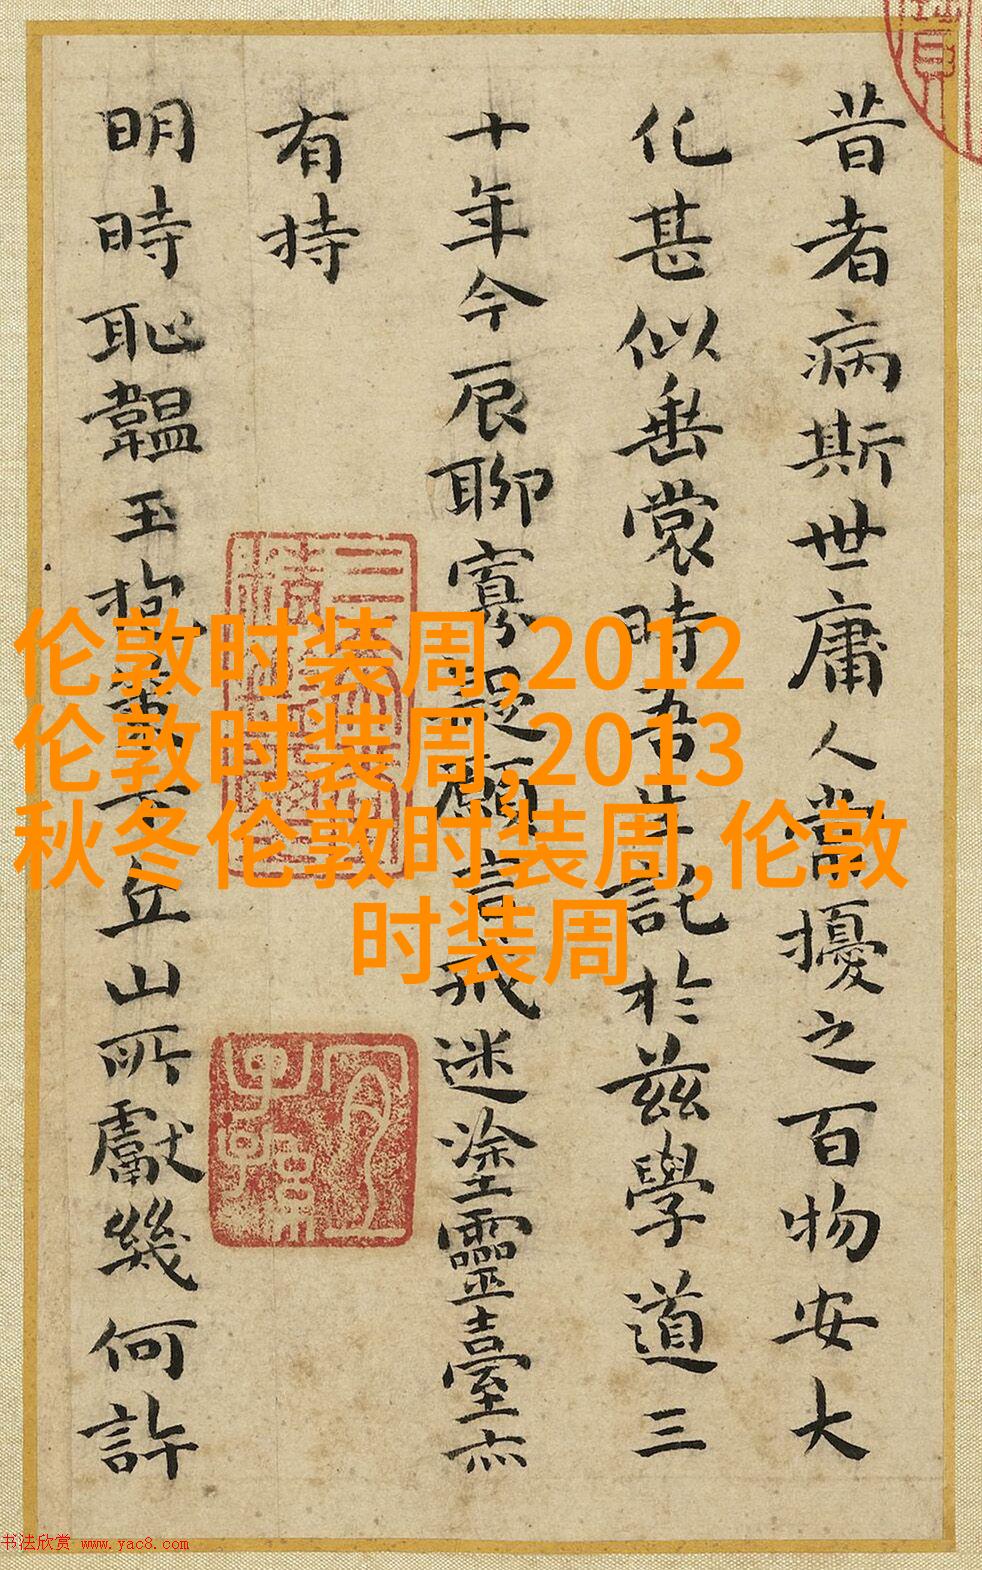 昔者病斯世庸人當擾之百物安大
化甚似垂裳時吾昔託於茲學道三
十年今辰聊願言戒迷塗靈臺亦
有持
明時恥韞玉抱下丘山所獻幾何許
伦敦时装周,2012
伦敦时装周,2013
秋冬伦敦时装周,伦敦
时装周
书法欣赏 www.yac8.com